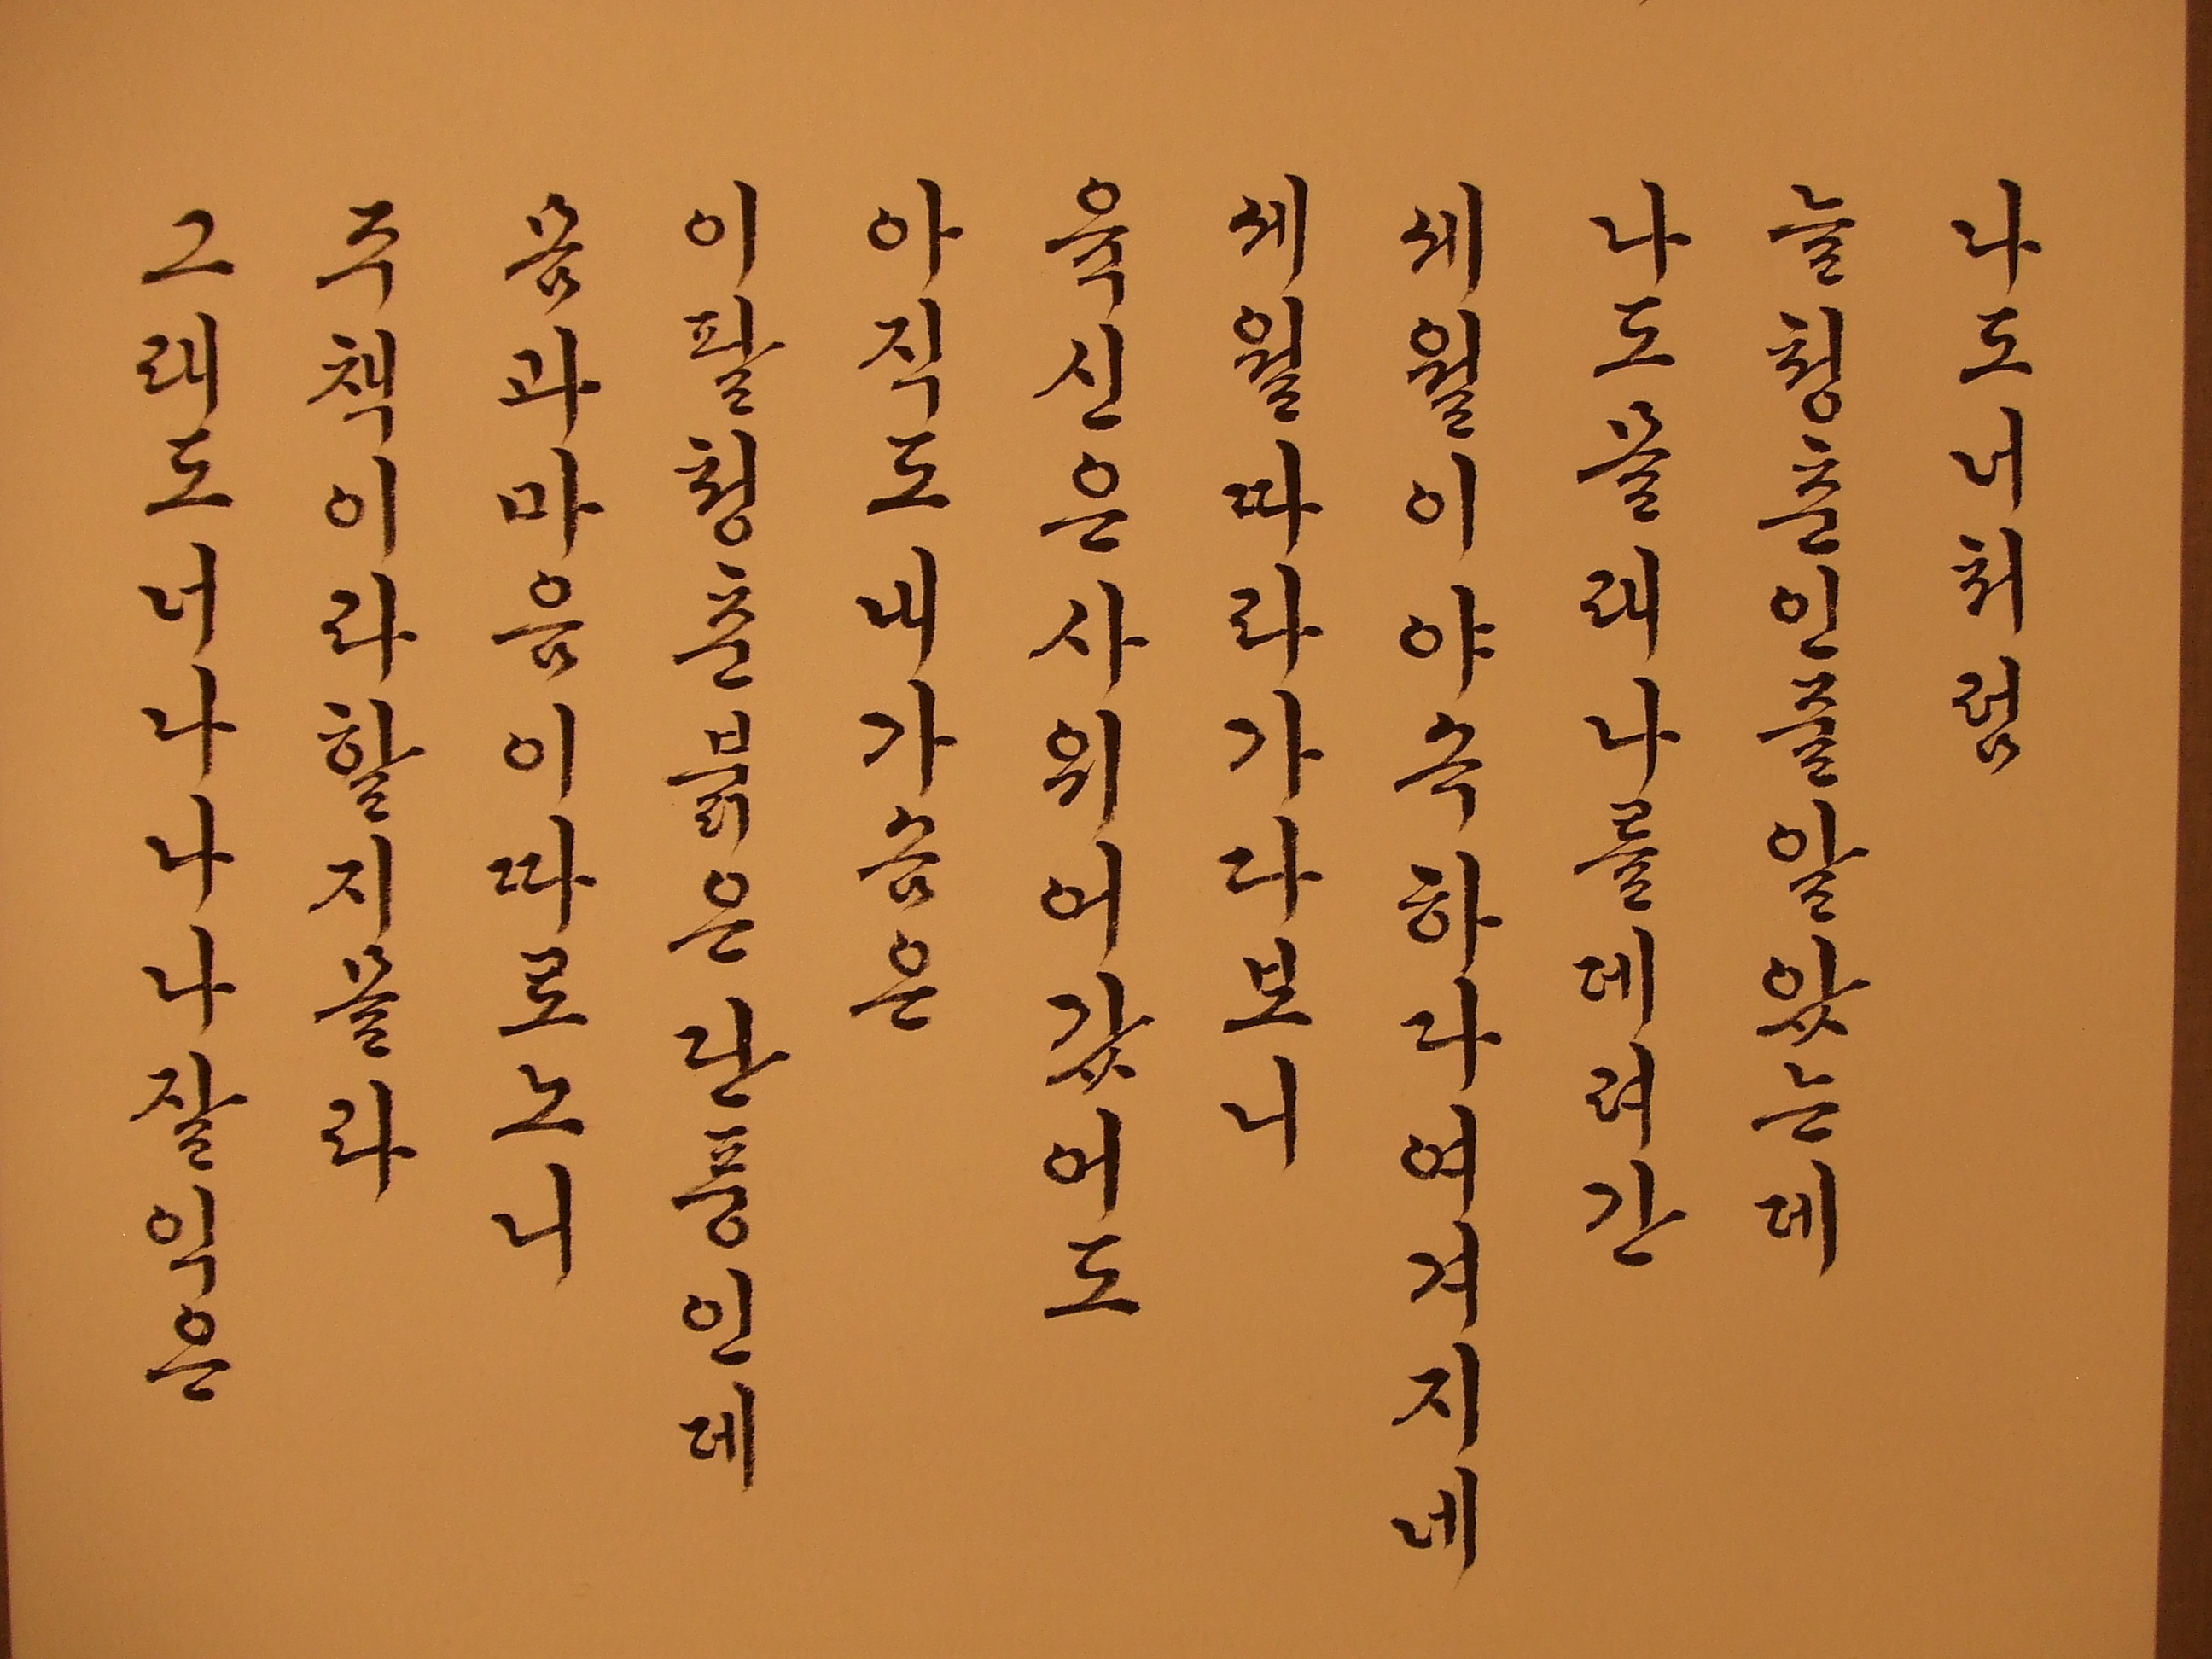 나도너처럼
늘청춘인줄알았는데
나도몰래나를데려간
세월이야속하다여겨지네
세월따라가다보니
육신은사위어갔어도
아직도내가슴은
이팔청춘붉은단풍인데
몸과마음이따로노니
주책이라할지몰라
그래도너나나나잘익은